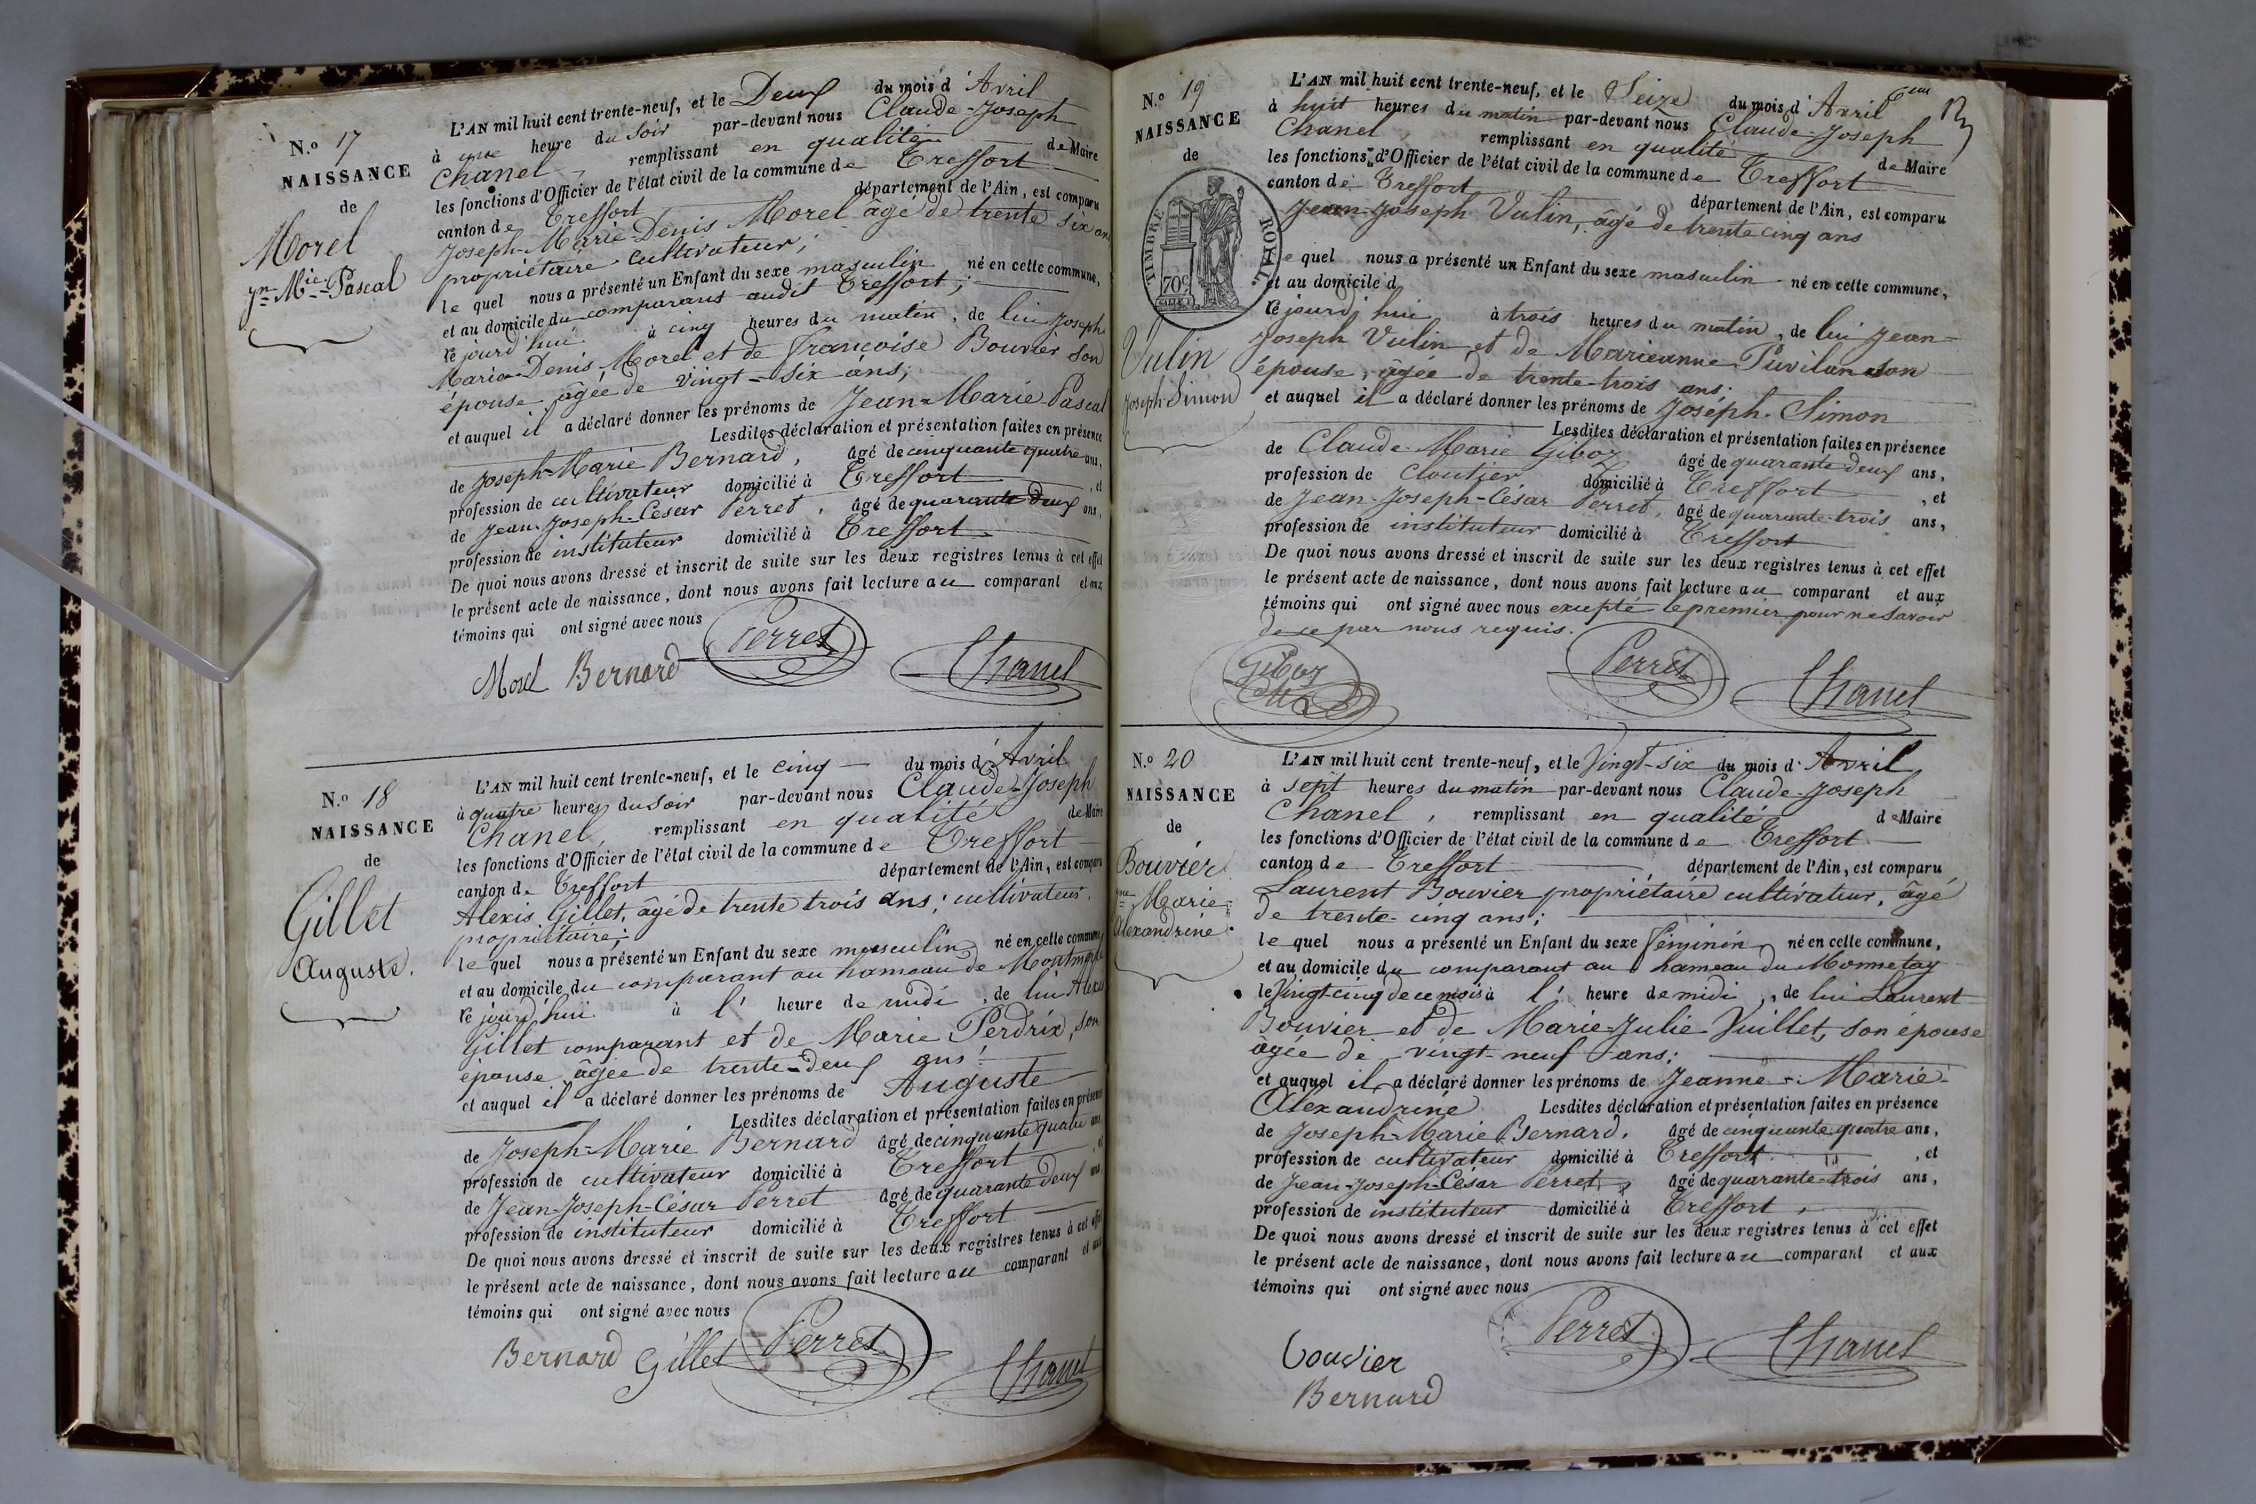 N.o 17
NAISSANCE
de
Morel
Jn Mie Pascal
L'AN mil huit cent trente-neuf, et le Deux du mois d' Avril
à une heure du soir par-devant nous Claude-Joseph
Chanel, remplissant en qualité de Maire
les fonctions d'Officier de l'état civil de la commune de Treffort
canton de Treffort département de l'Ain, est comparu
Joseph-Marie-Denis Morel âgé de trente six ans
propriétaire cultivateur;
le quel nous a présenté un Enfant du sexe masculin né en cette commune,
et au domicile du comparant audit Treffort;
ce jourd'hui à cinq heures du matin, de lui Joseph
Marie-Denis Morel et de Françoise Bouvier son
épouse âgée de vingt-six ans;
et auquel il a déclaré donner les prénoms de Jean-Marie Pascal
Lesdites déclaration et présentation faites en présence
de Joseph-Marie Bernard, âgé de cinquante quatre ans,
profession de cultivateur domicilié à Treffort, et
de Jean-Joseph-César Perret, âgé de quarante deux ans,
profession de instituteur domicilié à Treffort
De quoi nous avons dressé et inscrit de suite sur les deux registres tenus à cet effet
le présent acte de naissance, dont nous avons fait lecture au comparant et aux
témoins qui ont signé avec nous
Morel Bernard Perret Chanel
N.o 18
NAISSANCE
de
Gillet
Auguste.
L'AN mil huit cent trente-neuf, et le cinq du mois d' Avril
à quatre heures du soir par-devant nous Claude-Joseph
Chanel, remplissant en qualité de Maire
les fonctions d'Officier de l'état civil de la commune de Treffort
canton de Treffort département de l'Ain, est comparu
Alexis Gillet, âgé de trente trois ans; cultivateur,
propriétaire;
le quel nous a présenté un Enfant du sexe masculin né en cette commune
et au domicile du comparant au hameau de
ce jourd'hui à l' heure de midi, de lui Alexis
Gillet comparant et de Marie Perdrix, son
épouse âgée de trente-deux ans;
et auquel il a déclaré donner les prénoms de Auguste
Lesdites déclaration et présentation faites en présence
de Joseph-Marie Bernard âgé de cinquante quatre ans
profession de cultivateur domicilié à Treffort et
de Jean-Joseph-César Perret âgé de quarante deux ans
profession de instituteur domicilié à Treffort
De quoi nous avons dressé et inscrit de suite sur les deux registres tenus à cet effet
le présent acte de naissance, dont nous avons fait lecture au comparant et aux
témoins qui ont signé avec nous
Bernard Gillet Perret Chanel
N.o 19
NAISSANCE
de
TIMBRE ROYAL
70c
Vulin
Joseph-Simon
L'AN mil huit cent trente-neuf, et le Seize du mois d' Avril
à huit heures du matin par-devant nous Claude-Joseph
Chanel, remplissant en qualité de Maire
les fonctions d'Officier de l'état civil de la commune de Treffort
canton de Treffort département de l'Ain, est comparu
Jean-Joseph Vulin, âgé de trente cinq ans
le quel nous a présenté un Enfant du sexe masculin né en cette commune,
et au domicile d
ce jourd'hui à trois heures du matin, de lui Jean-
Joseph Vulin et de Marieanne Puvilan son
épouse, âgée de trente-trois ans;
et auquel il a déclaré donner les prénoms de Joseph-Simon
Lesdites déclaration et présentation faites en présence
de Claude-Marie Giboz âgé de quarante deux ans,
profession de Cloutier domicilié à Treffort, et
de Jean-Joseph-César Perret, âgé de quarante-trois ans,
profession de instituteur domicilié à Treffort
De quoi nous avons dressé et inscrit de suite sur les deux registres tenus à cet effet
le présent acte de naissance, dont nous avons fait lecture au comparant et aux
témoins qui ont signé avec nous excepté le premier pour ne savoir
de ce par nous requis.
Giboz Perret Chanel
N.o 20
NAISSANCE
de
Bouvier
Jne Marie
Alexandrine.
L'AN mil huit cent trente-neuf, et le Vingt-six du mois d' Avril
à sept heures du matin par-devant nous Claude-Joseph
Chanel, remplissant en qualité de Maire
les fonctions d'Officier de l'état civil de la commune de Treffort
canton de Treffort département de l'Ain, est comparu
Laurent Bouvier propriétaire cultivateur, âgé
de trente-cinq ans;
le quel nous a présenté un Enfant du sexe féminin né en cette commune,
et au domicile du comparant au hameau du Monnetay
le Vingt-cinq de ce mois à l' heure de midi, de lui Laurent
Bouvier et de Marie-Julie Vuillet, son épouse
âgée de vingt-neuf ans;
et auquel il a déclaré donner les prénoms de Jeanne-Marie-
Alexandrine Lesdites déclaration et présentation faites en présence
de Joseph-Marie Bernard, âgé de cinquante quatre ans,
profession de cultivateur domicilié à Treffort, et
de Jean-Joseph-César Perret, âgé de quarante-trois ans,
profession de instituteur domicilié à Treffort,
De quoi nous avons dressé et inscrit de suite sur les deux registres tenus à cet effet
le présent acte de naissance, dont nous avons fait lecture au comparant et aux
témoins qui ont signé avec nous
Perret Chanel
bouvier
Bernard